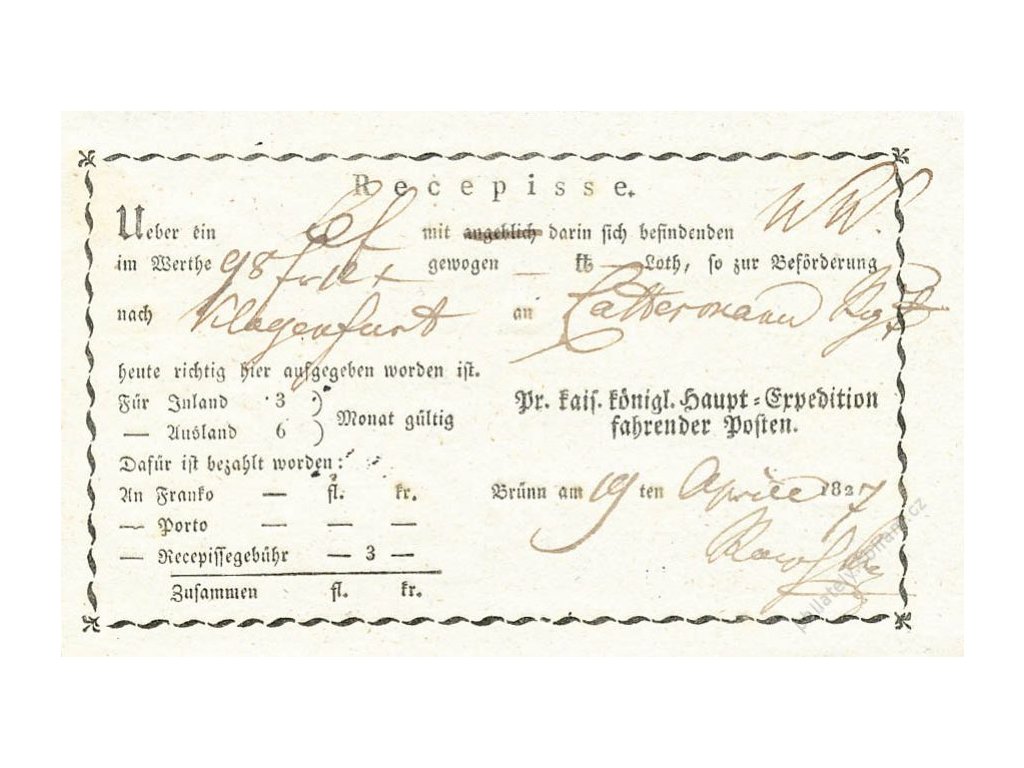 Recepisse.
Ueber ein mit angeblich darin sich befindenden
im Werthe 98 gewogen — ℔ — Loth, so zur Beförderung
nach Klagenfurt an
heute richtig hier aufgegeben worden ist.
Für Inland 3 )
— Ausland 6 ) Monat gültig
Pr. kais. königl. Haupt=Expedition
fahrender Posten.
Dafür ist bezahlt worden:
An Franko — fl. kr.
Brünn am 19 ten Aprill 1827
— Porto — — —
— Recepissegebühr — 3 —
Zusammen fl. kr.